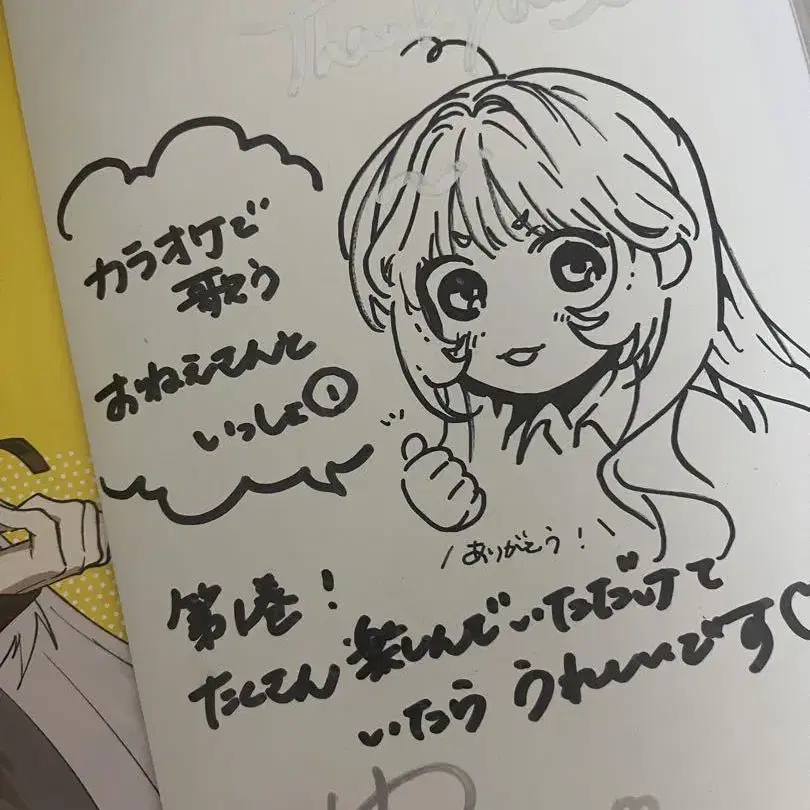 Thank you
カラオケで
歌う
おねえさんと
いっしょ①
ありがとう!
第1巻!
たくさん楽しんでいただけて
いたら うれしいです♡